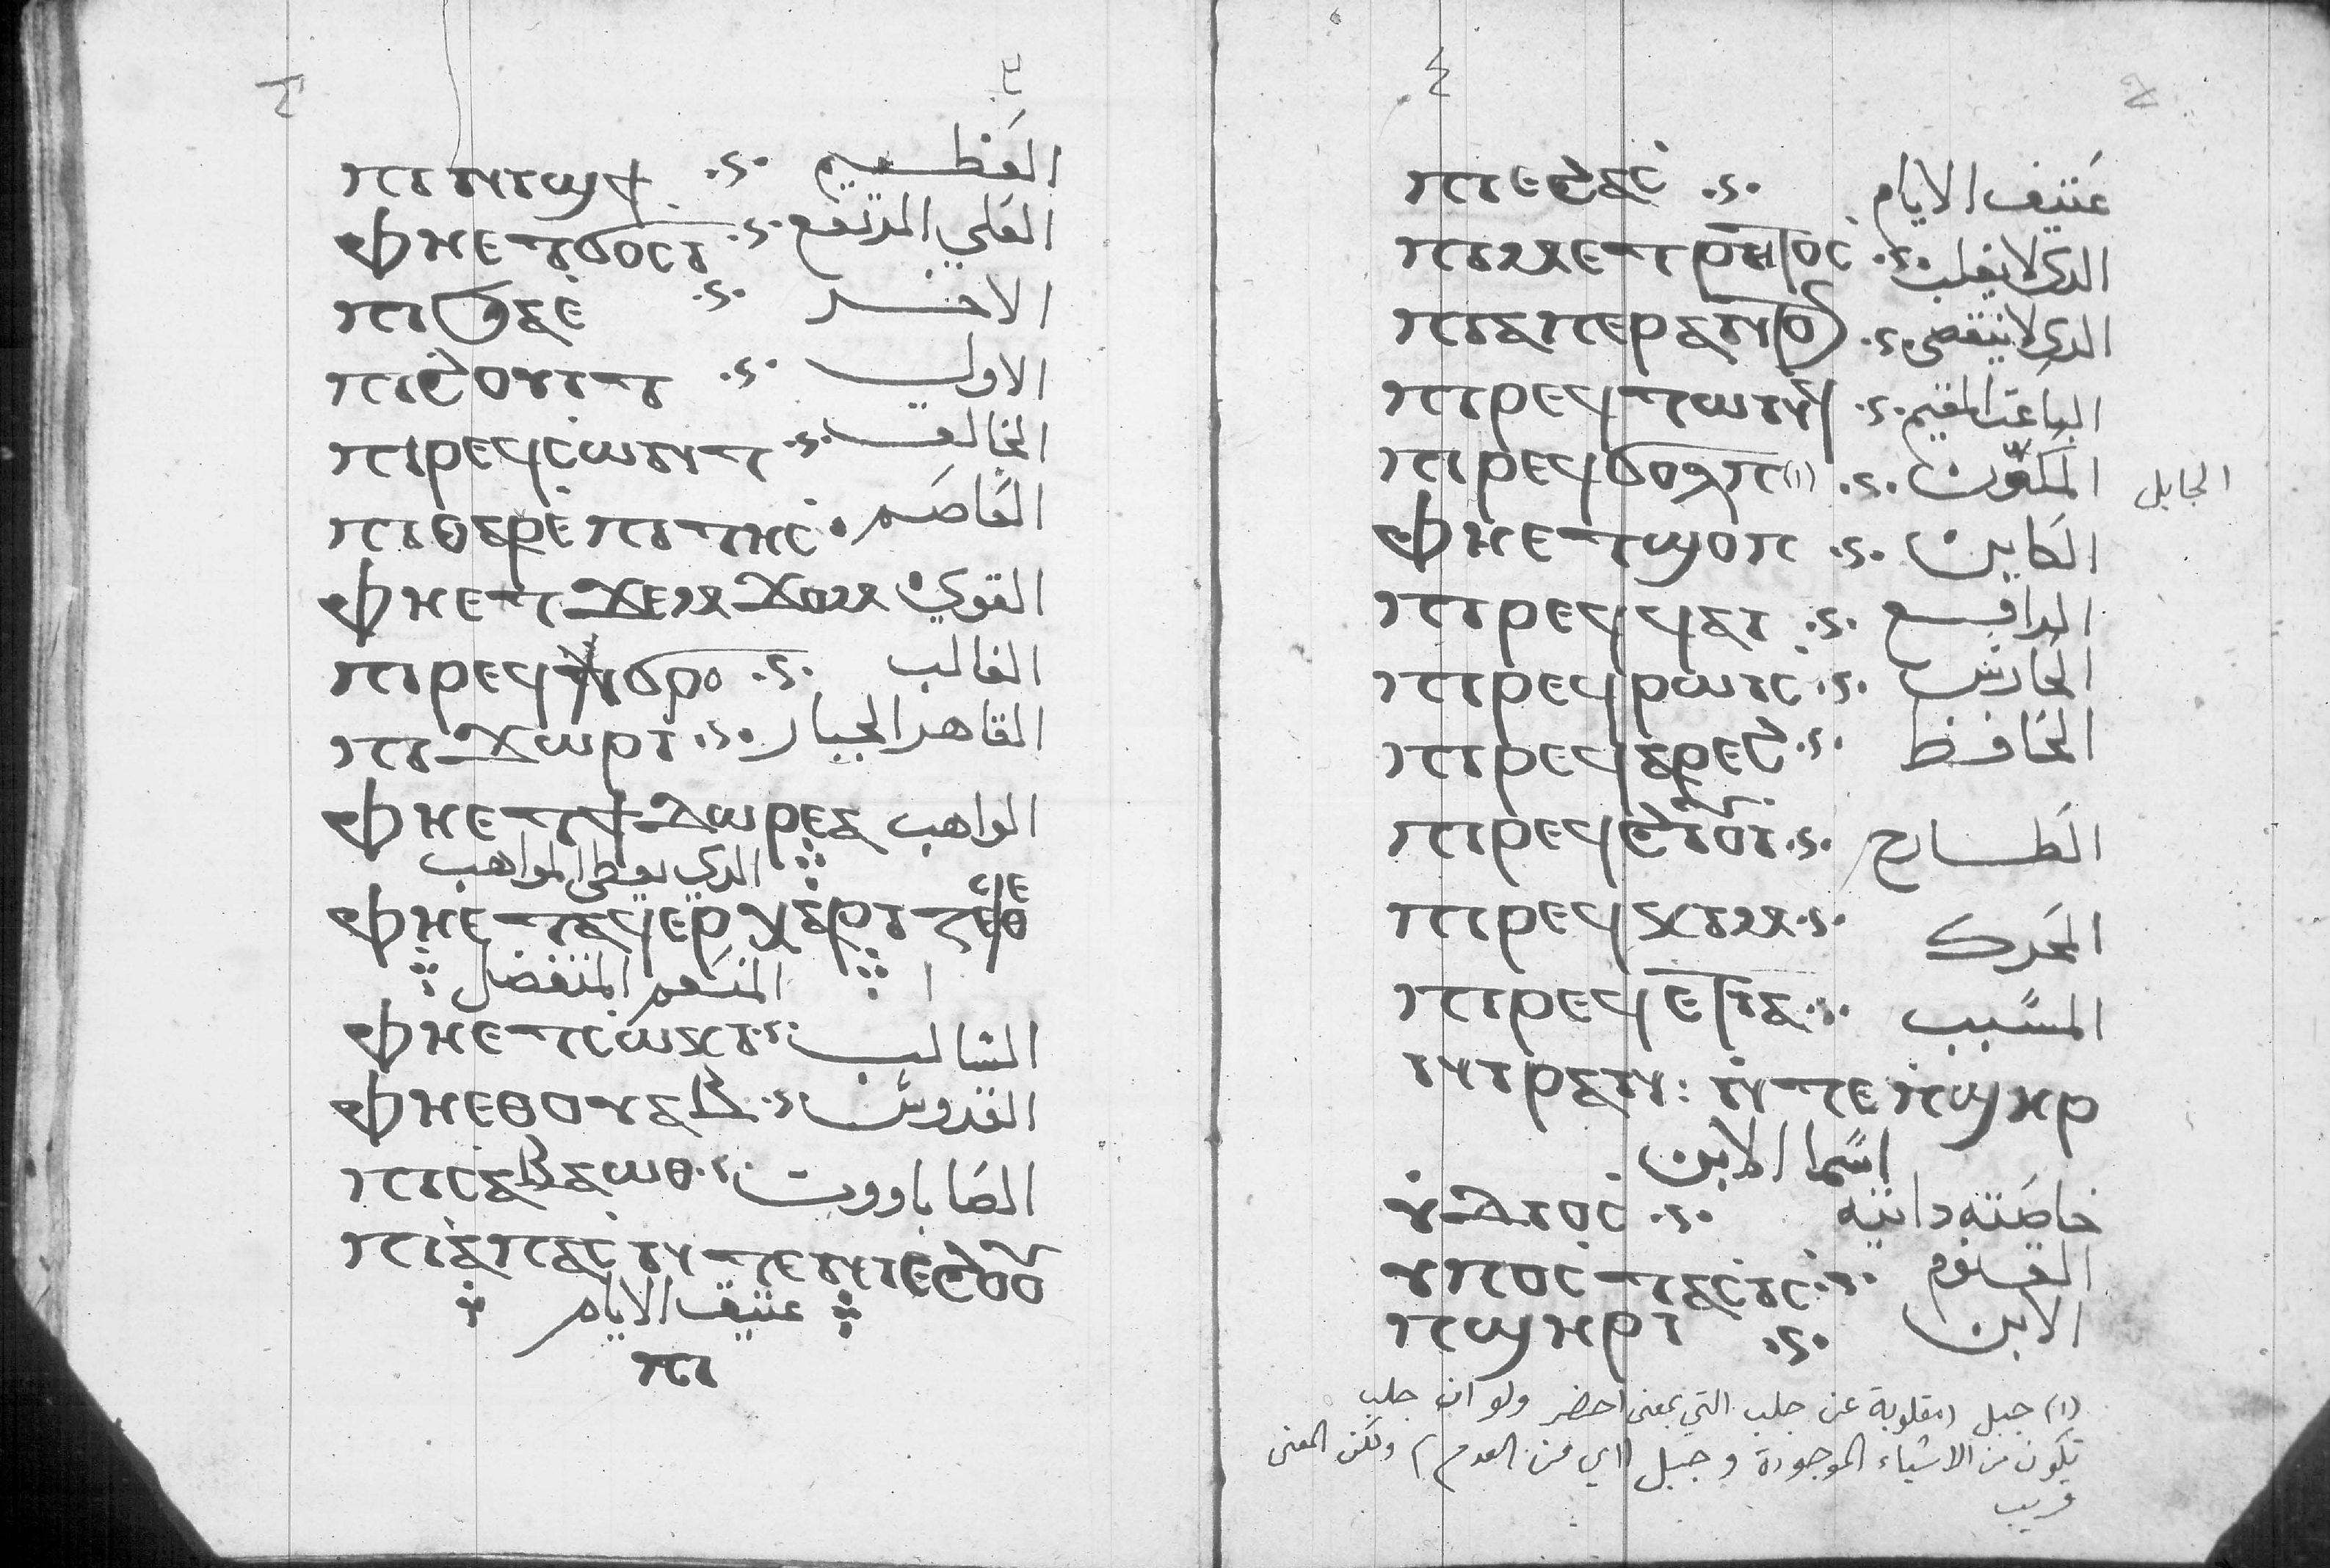 ⲡⲓⲛⲓϣϯ .ⲋ. العظيم
ⲫⲏⲉⲧϭⲟⲥⲓ .ⲋ. العلي المرتفع
ⲡⲓϧⲁⲉ .ⲋ. الاخر
ⲡⲓϩⲟⲩⲓⲧ .ⲋ. الاول
ⲡⲓⲣⲉϥⲥⲱⲛⲧ .ⲋ. الخالق
ⲡⲓⲑⲁⲣⲉⲡⲓⲧⲏⲥ العاصم
ⲫⲏⲉⲧϫⲉⲙϫⲟⲙ القوي
ⲡⲓⲣⲉϥϭⲣⲟ .ⲋ. الغالب
ⲡⲓϫⲱⲣⲓ .ⲋ. القاهر الجبار
ⲫⲏⲉⲧϯⲇⲱⲣⲉⲁ الواهب
الدي يعطي المواهب
ⲫⲏⲉⲧⲁϥⲉⲣⲭⲁⲣⲓⲍⲉⲥⲑⲉ
المنعم المتفضل
ⲫⲏⲉⲧⲥⲱⲕⲓ .ⲋ. السالب
ⲫⲏⲉⲑⲟⲩⲁⲃ .ⲋ. القدوس
ⲡⲓⲥⲁⲃⲁⲱⲑ .ⲋ. الصاباووت
ⲡⲓⲁⲡⲁⲥ ⲛⲧⲉⲛⲓⲉϩⲟⲟⲩ
عتيق الايام
ⲡⲓ
ⲡⲓⲉϩⲁⲥ .ⲋ. عتيق الايام
.ⲋ. الدي لا يغلب
.ⲋ. الدي لا ينقضي
ⲡⲓⲣⲉϥⲧⲱⲛϥ .ⲋ. الباعث المقيم
ⲡⲓⲣⲉϥϭⲟϩⲡ(١) .ⲋ. المكوّن الجابل
ⲫⲏⲉⲧϣⲟⲡ .ⲋ. الكاين
ⲡⲓⲣⲉϥϥⲁⲓ .ⲋ. الرافع
ⲡⲓⲣⲉϥⲣⲱⲓⲥ .ⲋ. الحارس
ⲡⲓⲣⲉϥⲁⲣⲉϩ .ⲋ. الحافظ
ⲡⲓⲣⲉϥϩⲓⲟⲩⲓ .ⲋ. الطارح
ⲡⲓⲣⲉϥⲕⲓⲙ .ⲋ. المحرك
ⲡⲓⲣⲉϥⲉⲧⲓⲁ .ⲋ. المسبب
ⲛⲓⲣⲁⲛ : ⲛⲧⲉ ⲡϣⲏⲣ
اسما الابن
.ⲋ. خاصته داتيه
ⲩⲡⲟⲥⲧⲁⲥⲓⲥ .ⲋ. القنوم
ⲡϣⲏⲣⲓ .ⲋ. الابن
(١) جبل (مقلوبة عن جلب التي بمعنى احضر ولو ان جلب
تكون من الاشياء الموجودة وجبل (اي من العدم) ولكن المعنى
قريب